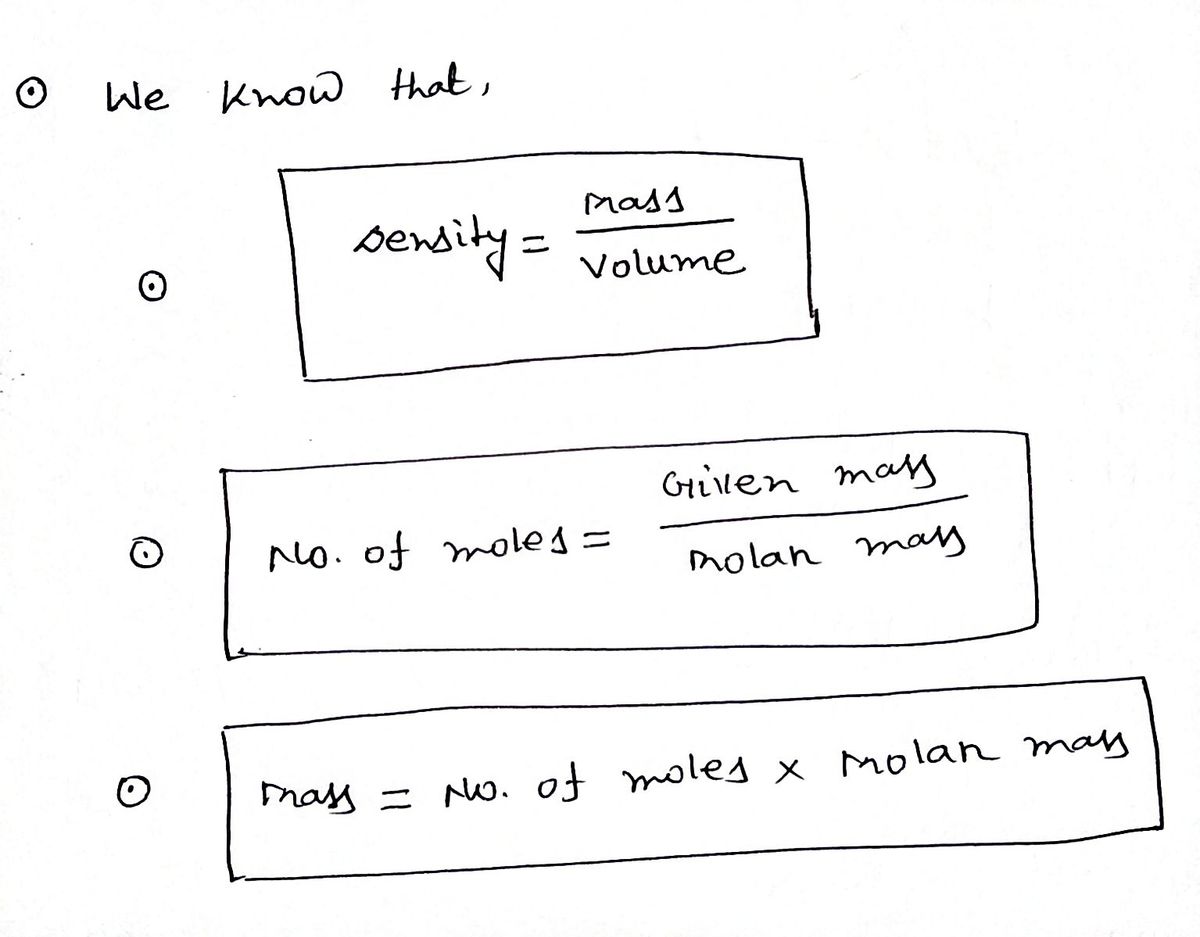 We know that,
Density = mass / volume
No. of moles = Given mass / molar mass
mass = No. of moles x molar mass